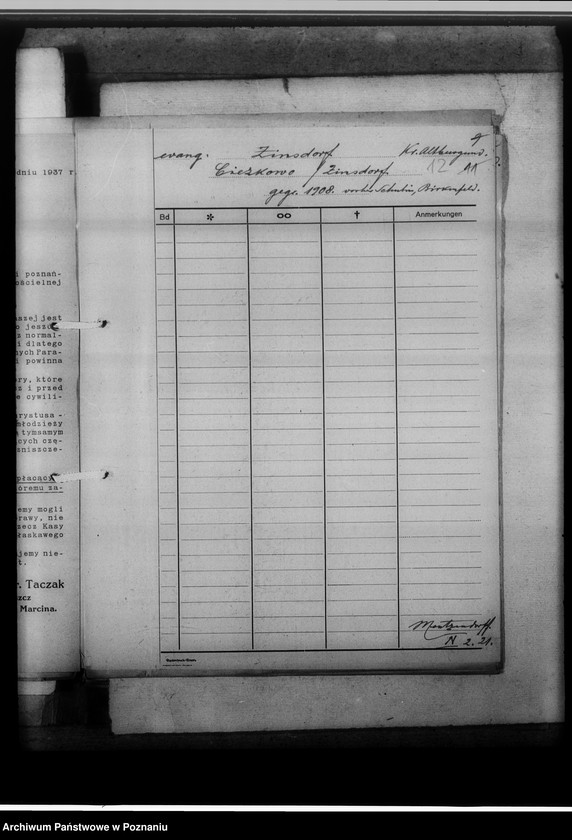 dniu 1937 r.
i poznań-
ościelnej
aszej jest
o jeszcz
z normal-
i dlatego
nych Para-
i powinna
ary, które
z i przed
e cywili-
rystusa -
młodzieży
tymsamym
ących czę-
zniszcze-
płacący
óremu za-
emy mogli
rawy, nie
rzecz Kasy
łaskawego
ujemy nie-
t.
r. Taczak
szcz
Marcina.
evang. Zinsdorf Kr. Altburgund.
Cieżkowo / Zinsdorf. 12 11
gegr. 1908. vorher Schubin, Birkenfeld.
Bd * oo † Anmerkungen
N 2. 21.
Archiwum Państwowe w Poznaniu